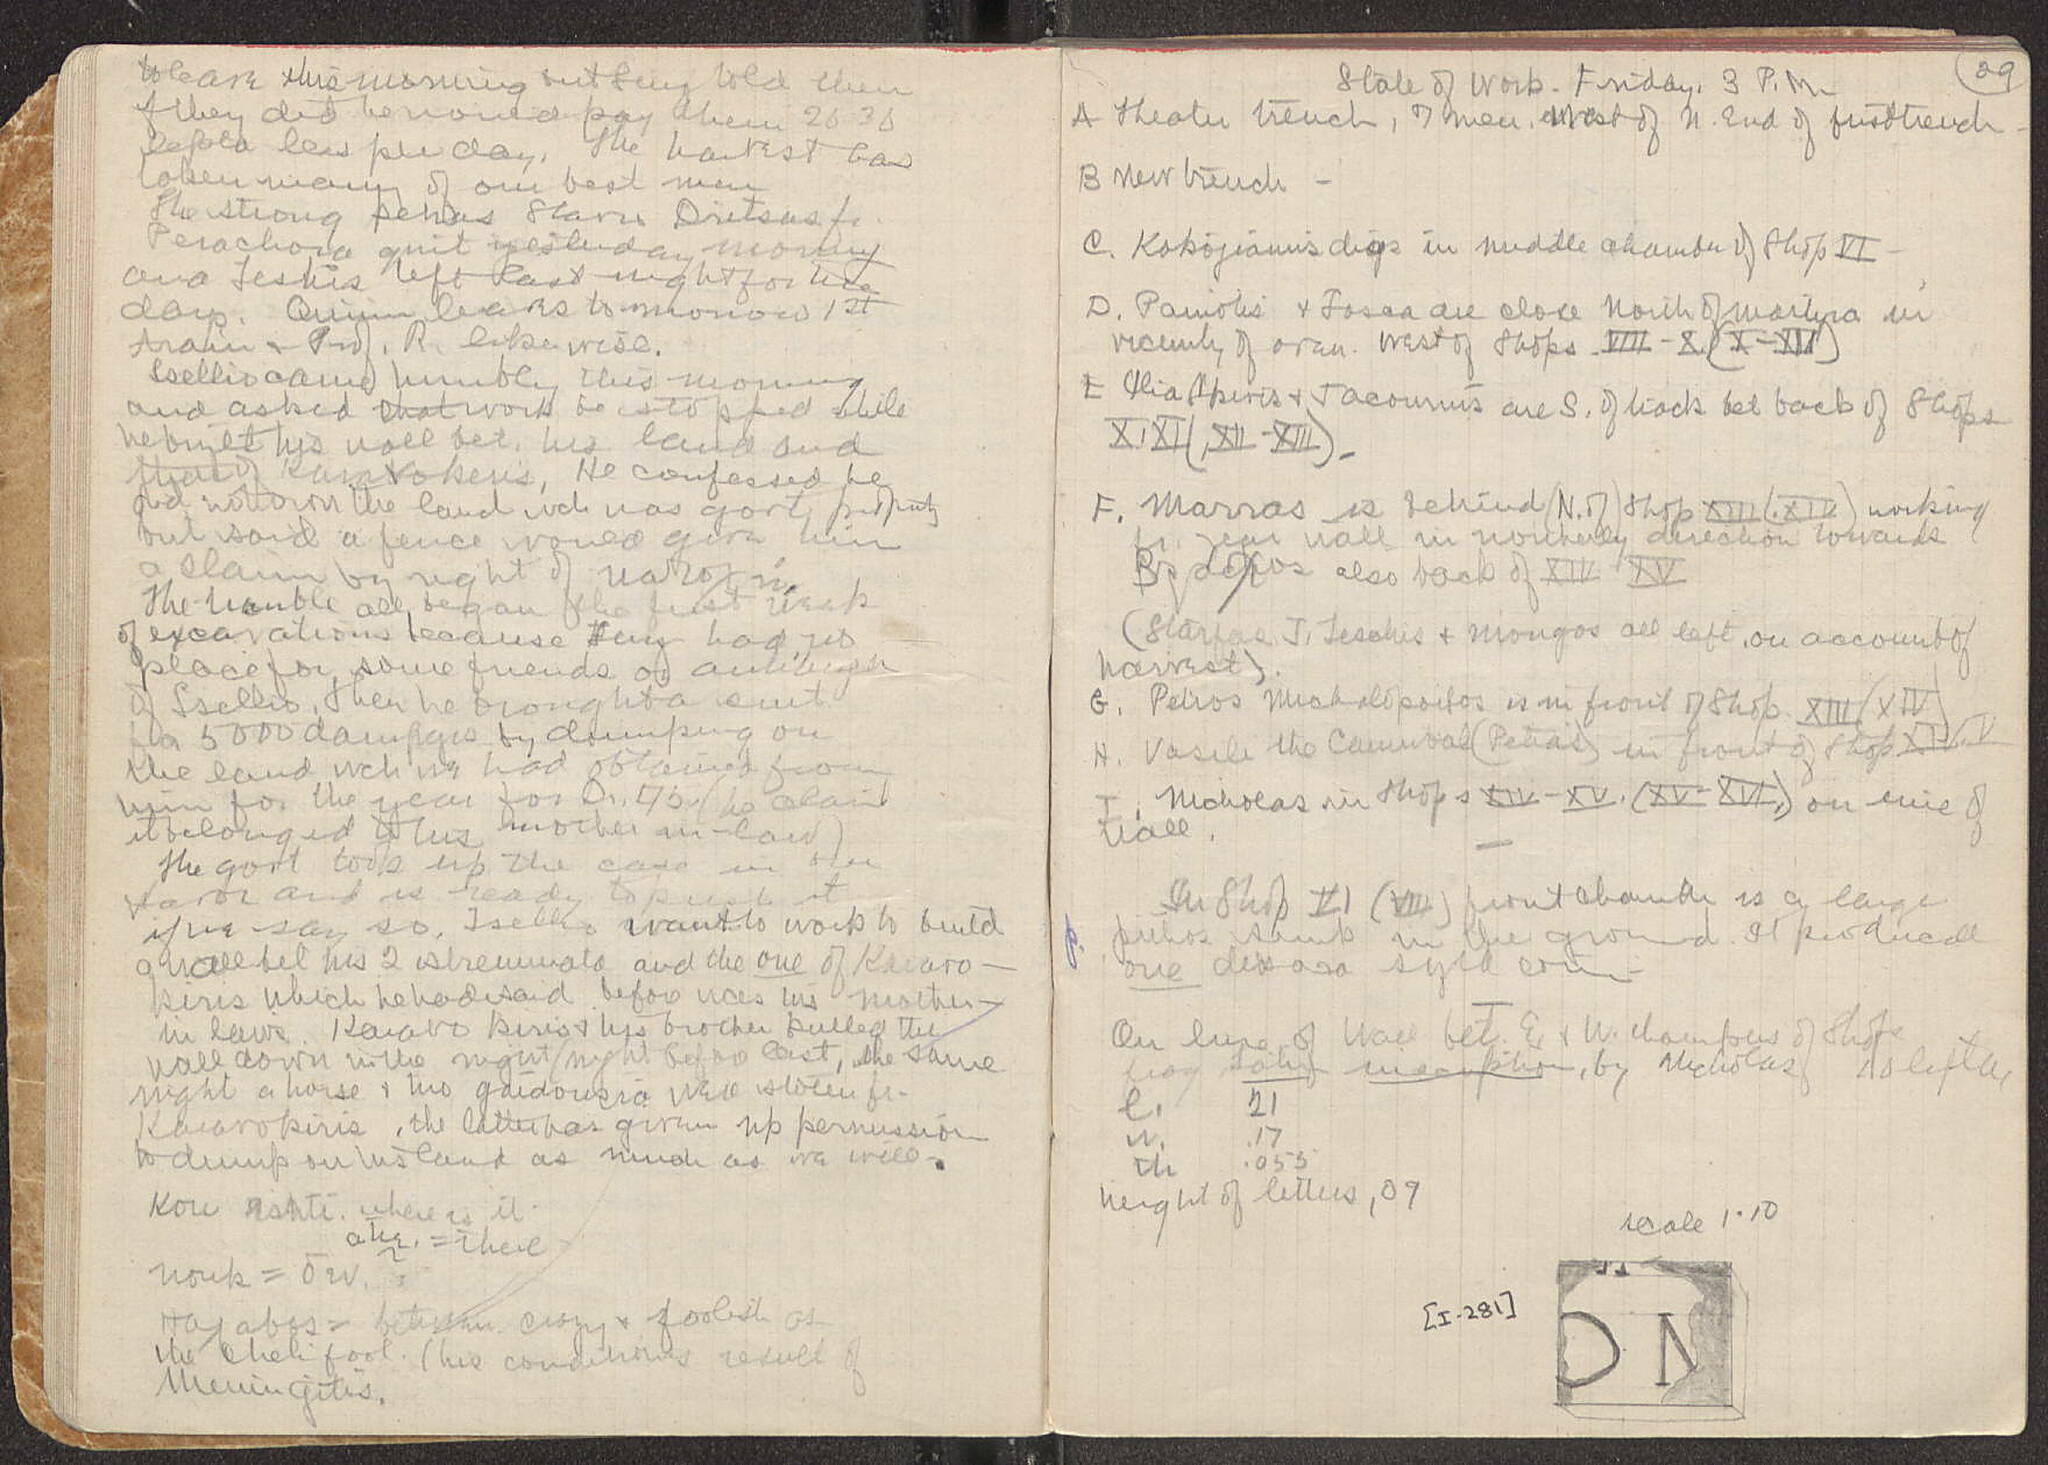 to leave this morning but Seeg told them
if they did he would pay them 20-30
lepta less per day. The harvest has
taken many of our best men
The strong Stavru Dritsas fr.
Perachora quit yesterday morning
and Teskis left last night for
days. Quinn leaves tomorrow 1st
train & Prof. R. likewise.
Tsellio came humbly this morning
and asked that work be stopped while
he built his wall bet. his land and
that of He confessed he
did not own the land wch was govt property
but said a fence would give him
a claim by right of
The trouble all began the first week
of excavations because Seeg had no
place for some friends of
of Tsellio. Then he brought a suit
for 5000 damages by dumping on
the land wch we had obtained from
him for the year for Dr. 75 (he claim
it belonged to his mother-in-law)
The govt took up the case in our
favor and is ready to push it
if we say so. Tsellio want to work to build
a wall bet his 2 istremmata and the one of Karavo-
kiris which he had said before was his mother-
in laws. Karavokiris & his brother pulled the
wall down in the night (night before last, the same
night a horse & two gaidouria were stolen fr.
Karavokiris, the latter has given up permission
to dump on his land as much as we will.
Kou ishti. where is it.
= there
nouk = δεν.
= between crazy & foolish as
the fool. (his condition is result of
Meningitis.
29
State of Work. Friday. 3 P.M.
A Theater trench, 7 men. West of N. End of first trench -
B New trench -
C. Kakogiannis digs in middle chamber of Shop VI -
D. Paniotis & Tosca are close North of martyra in
vicinity of oven. West of Shops VIII - X (X - XII)
E Ilia Spiris & Tacounis are S. of track bet back of Shops
X, XI (, XII - XIII). -
F. Marras is behind (N. of) Shop XIII (XIV) working
fr. rear wall in northerly direction towards
also back of XIV XV
(Starfas, J. Teschis & Mongos all left, on account of
harvest).
G. Petros Michalopoulos is in front of Shop XIII (XIV)
H. Vasili the Cannibal (Petras) in front of Shop XIV, V
I. Nicholas in Shops XIV - XV. (XV - XVI,) on line of
wall.
In Shop VI (VIII) front chamber is a large
p. pithos sunk in the ground. It produced
one coin
On line of Wall bet. E. & W. chambers of Shops
frag Latin inscription, by Nicholas,
l. 21
w. .17
th .055
height of letters, 09
scale 1.10
[I-281]
ON